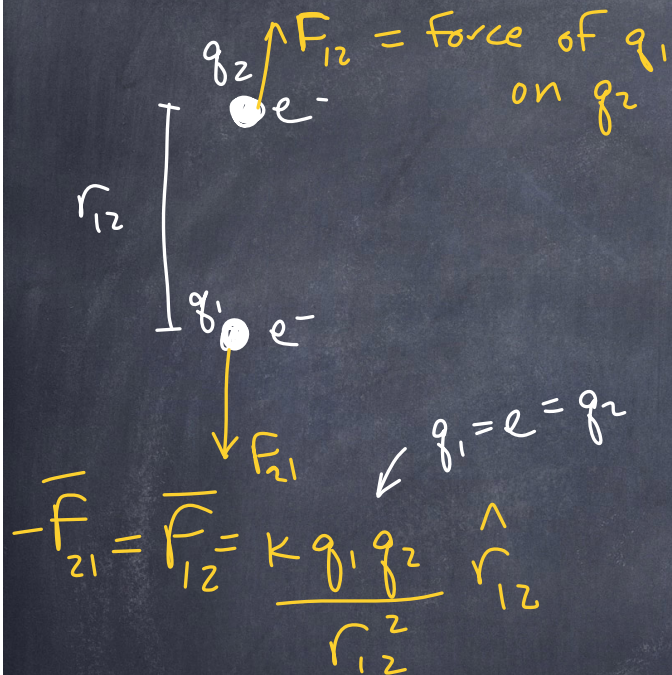 F₁₂ = Force of q₁
on q₂
q₂
e⁻
r₁₂
q₁
e⁻
F₂₁
q₁ = e = q₂
-F̅₂₁ = F̅₁₂ = k q₁ q₂ / r₁₂² r̂₁₂